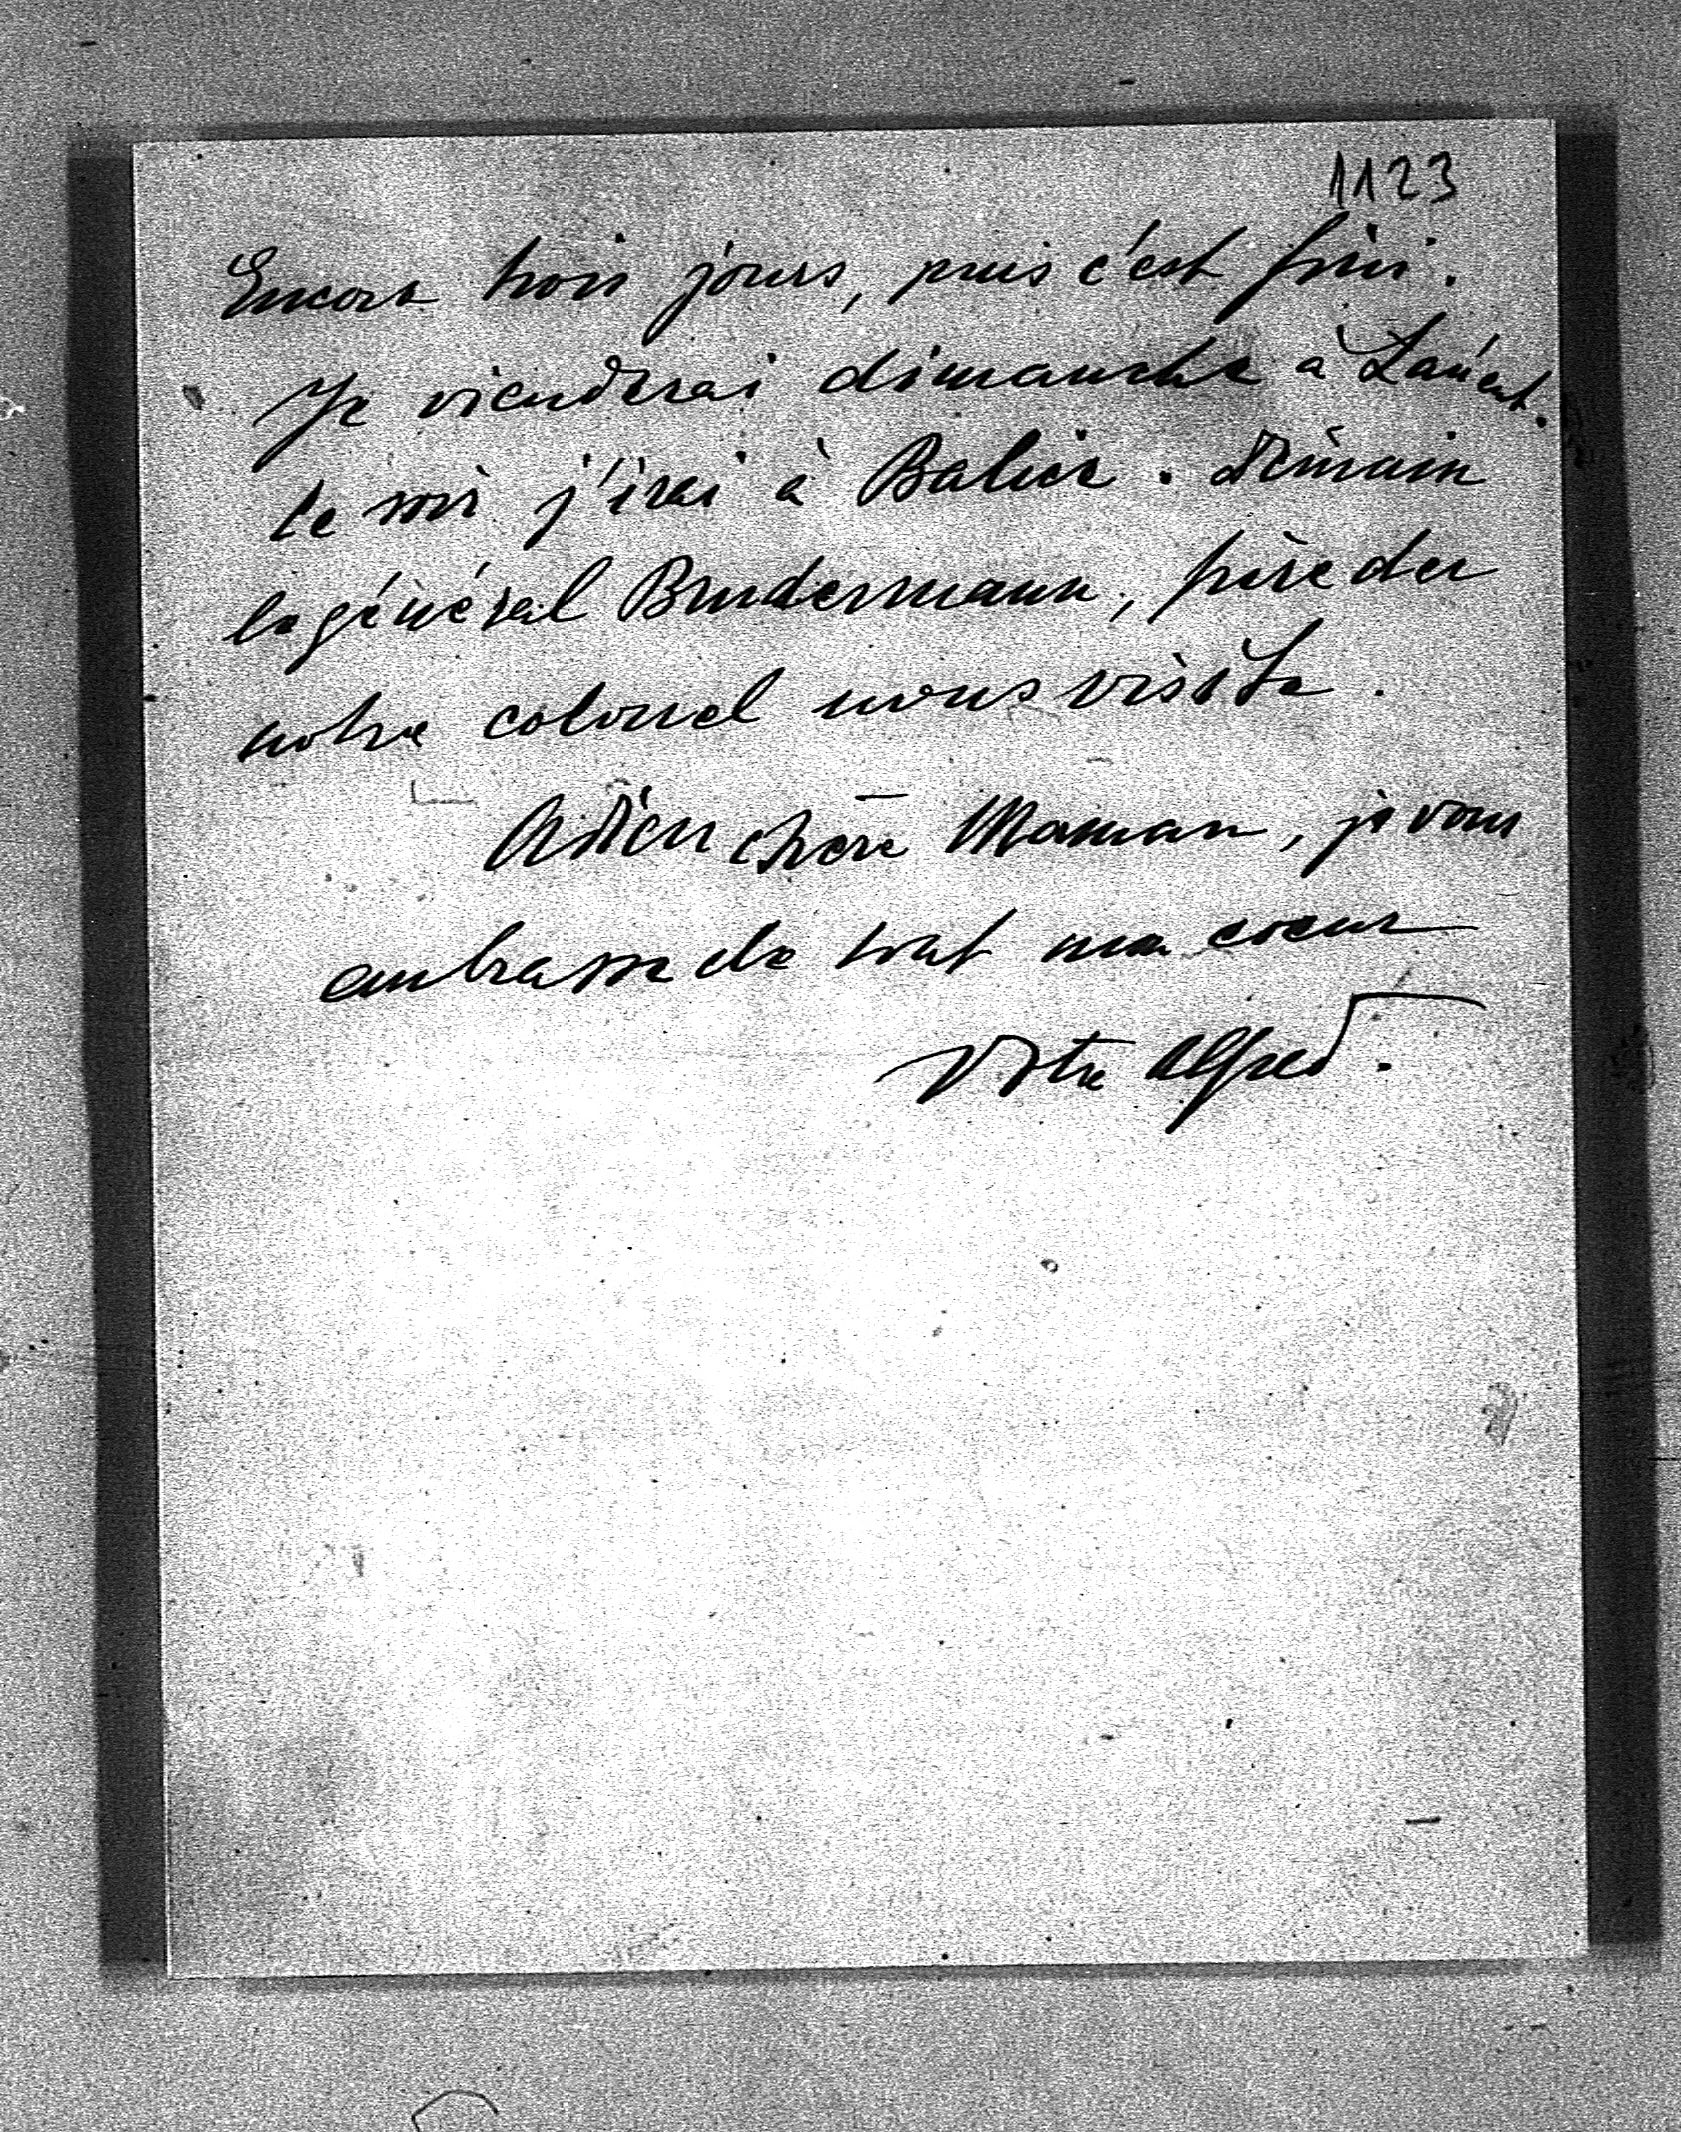 1123
Encore trois jours, puis c'est fini.
Je vienderai dimanche à Łańcut.
Le soir j'irai à Balice. Demain
le général Brudermann, frère der
notre colonel nous visite.
Adieu chère Maman, je vous
embrasse de tout mon coeur
Votre Alfred.